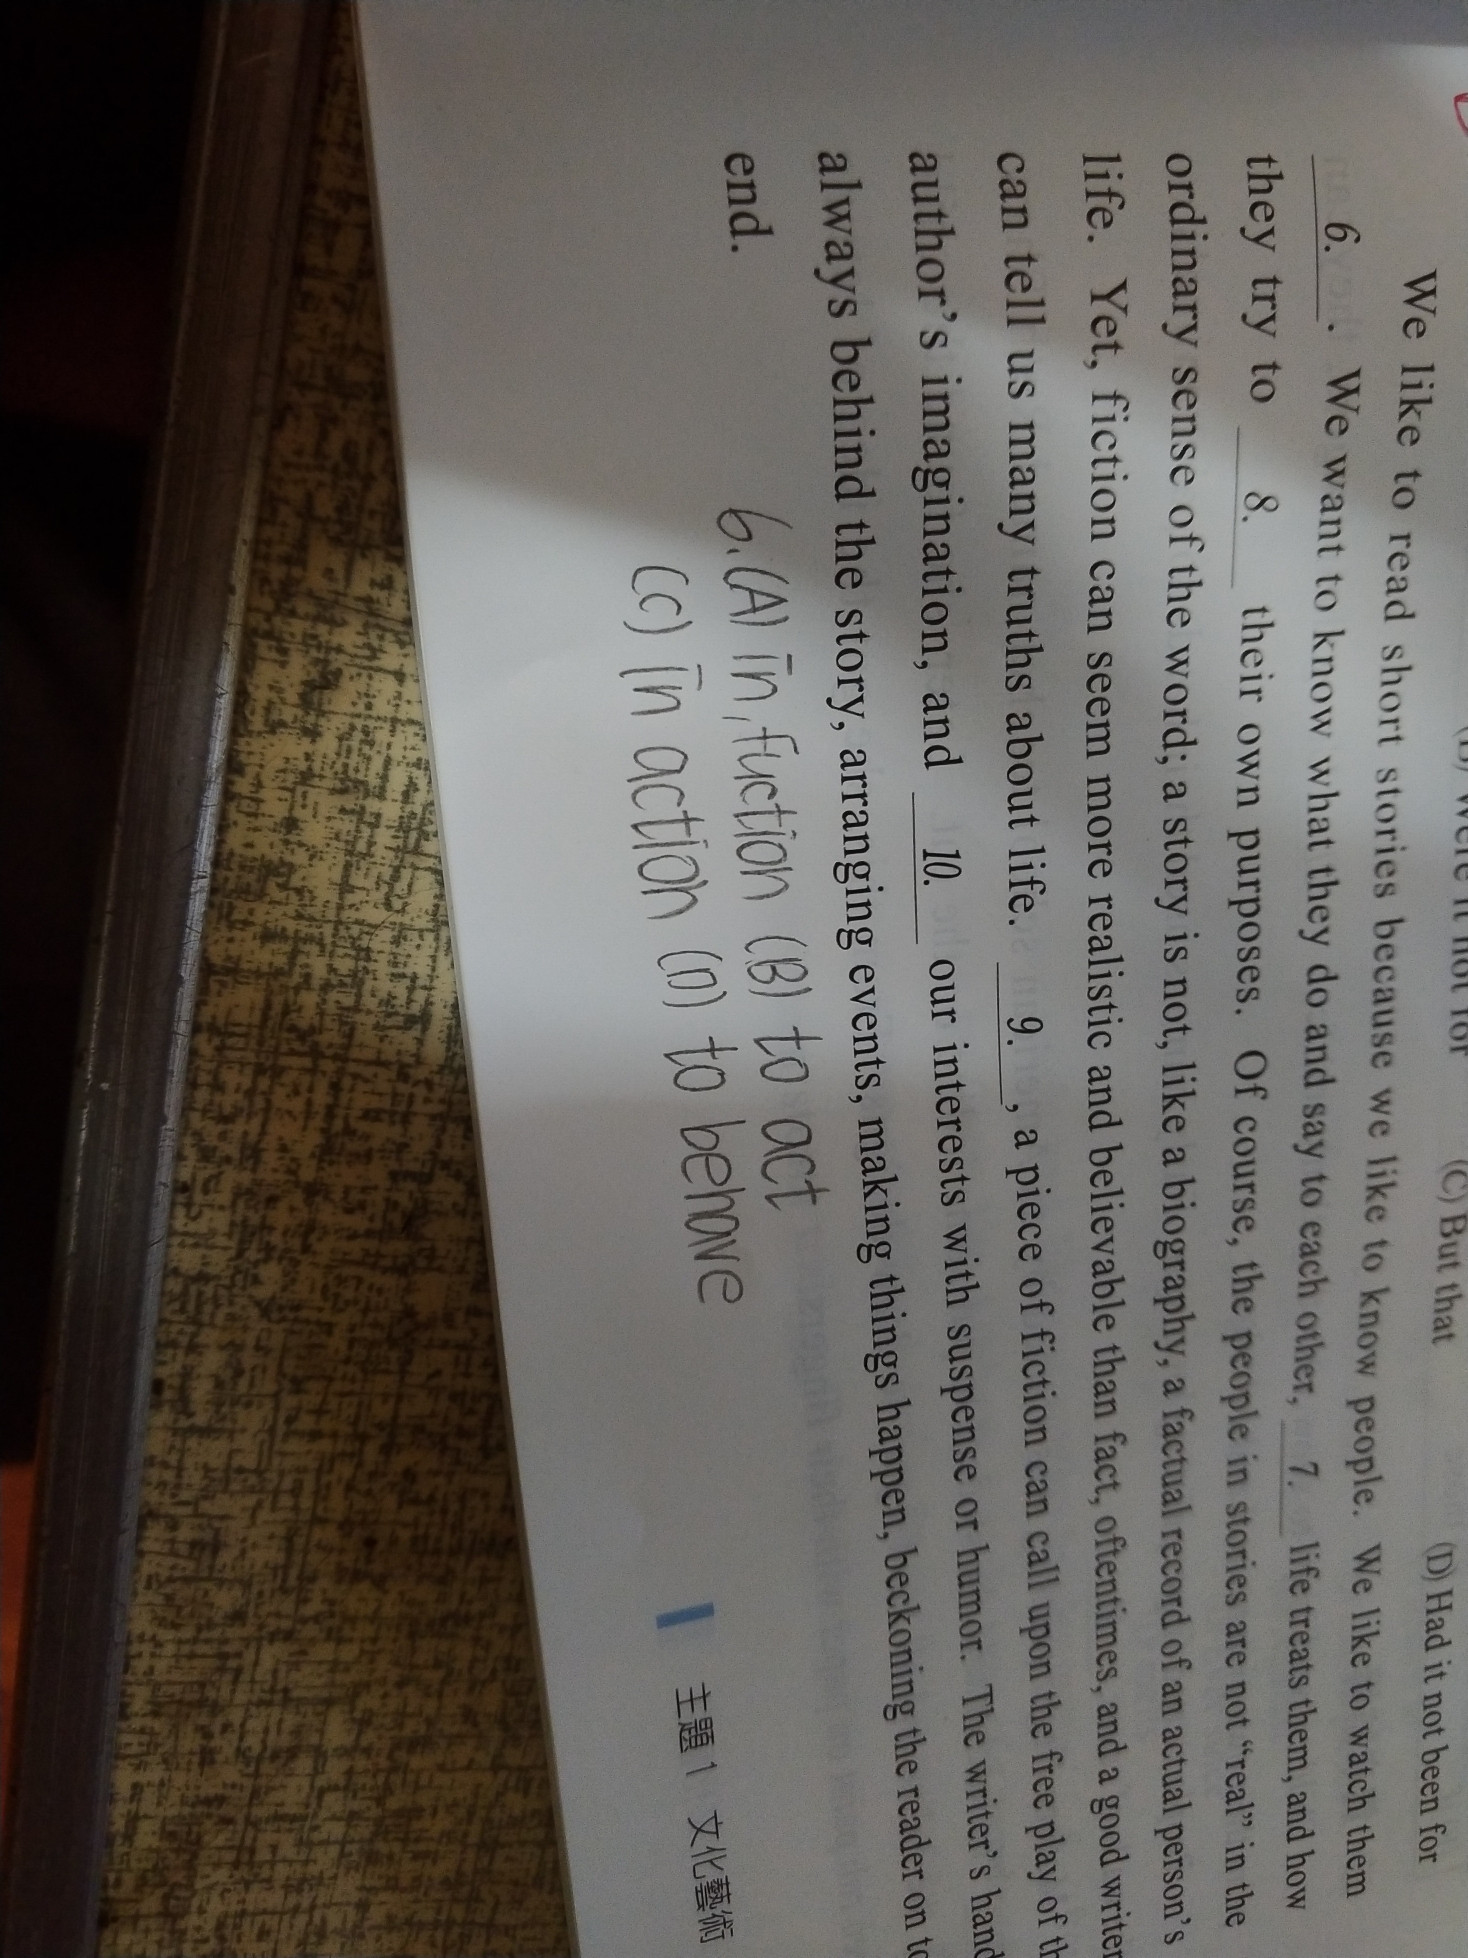 (C) But that (D) Had it not been for
We like to read short stories because we like to know people. We like to watch them
6. . We want to know what they do and say to each other, 7. life treats them, and how
they try to 8. their own purposes. Of course, the people in stories are not “real” in the
ordinary sense of the word; a story is not, like a biography, a factual record of an actual person’s
life. Yet, fiction can seem more realistic and believable than fact, oftentimes, and a good writer
can tell us many truths about life. 9. , a piece of fiction can call upon the free play of
author’s imagination, and 10. our interests with suspense or humor. The writer’s hand
always behind the story, arranging events, making things happen, beckoning the reader on to
end.
6.(A) in fuction (B) to act
(C) in action (D) to behave
主題 1 文化藝術